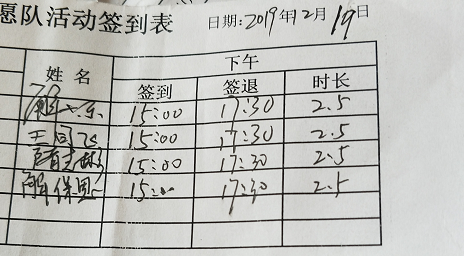 愿队活动签到表 日期:2019年12月19日
下午
姓名 签到 签退 时长
15:00 17:30 2.5
王同飞 15:00 17:30 2.5
15:00 17:30 2.5
解保恩 15:00 17:30 2.5